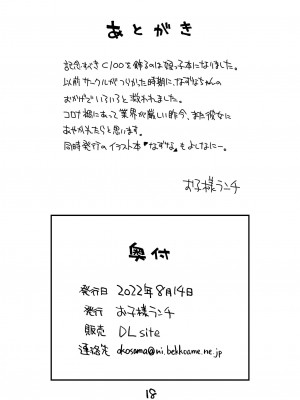 あとがき
記念すべきC100を飾るのは猫っ子本になりました。
以前サークルがつらかった時期に、なずなちゃんの
おかげでいろいろと救われました。
コロナ禍にあって業界が厳しい昨今、また彼女に
あやかれたらと思います。
同時発行のイラスト本『なずな』もよしなにー。
お子様ランチ
奥付
発行日 2022年8月14日
発行 お子様ランチ
販売 DLsite
連絡先 okosama@ni.bekkoame.ne.jp
18